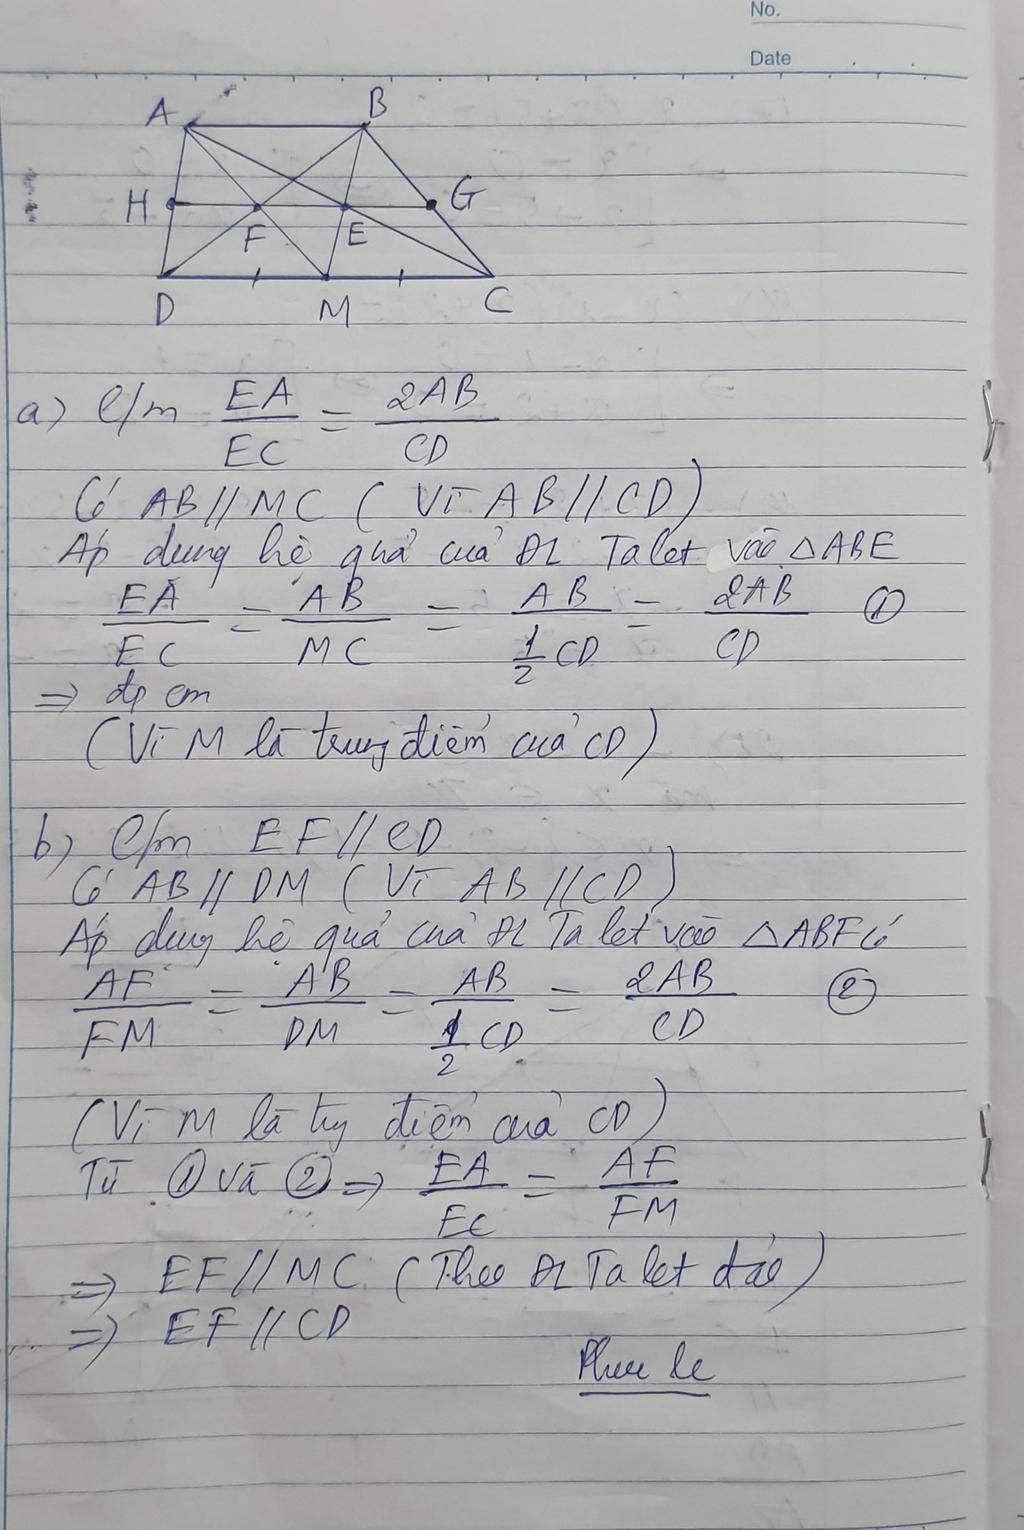 No.
Date
A B
H G
F E
D M C
a) C/m EA/EC = 2AB/CD
Có AB // MC ( Vì AB // CD )
Áp dụng hệ quả của ĐL Talet vào △ABE
EA/EC = AB/MC = AB/(1/2 CD) = 2AB/CD ①
=> đpcm
( Vì M là trung điểm của CD )
b) C/m EF // CD
Có AB // DM ( Vì AB // CD )
Áp dụng hệ quả của ĐL Ta let vào △ABF có
AF/FM = AB/DM = AB/(1/2 CD) = 2AB/CD ②
( Vì M là trg điểm của CD )
Từ ① và ② => EA/EC = AF/FM
=> EF // MC ( Theo ĐL Ta let đảo )
=> EF // CD